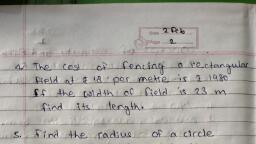 Date 2 Feb
Page 2
The cost of fencing a rectangular
field at ₹ 18 per metre is ₹ 1980
If the width of field is 23 m
find its length.
5. find the radius of a circle